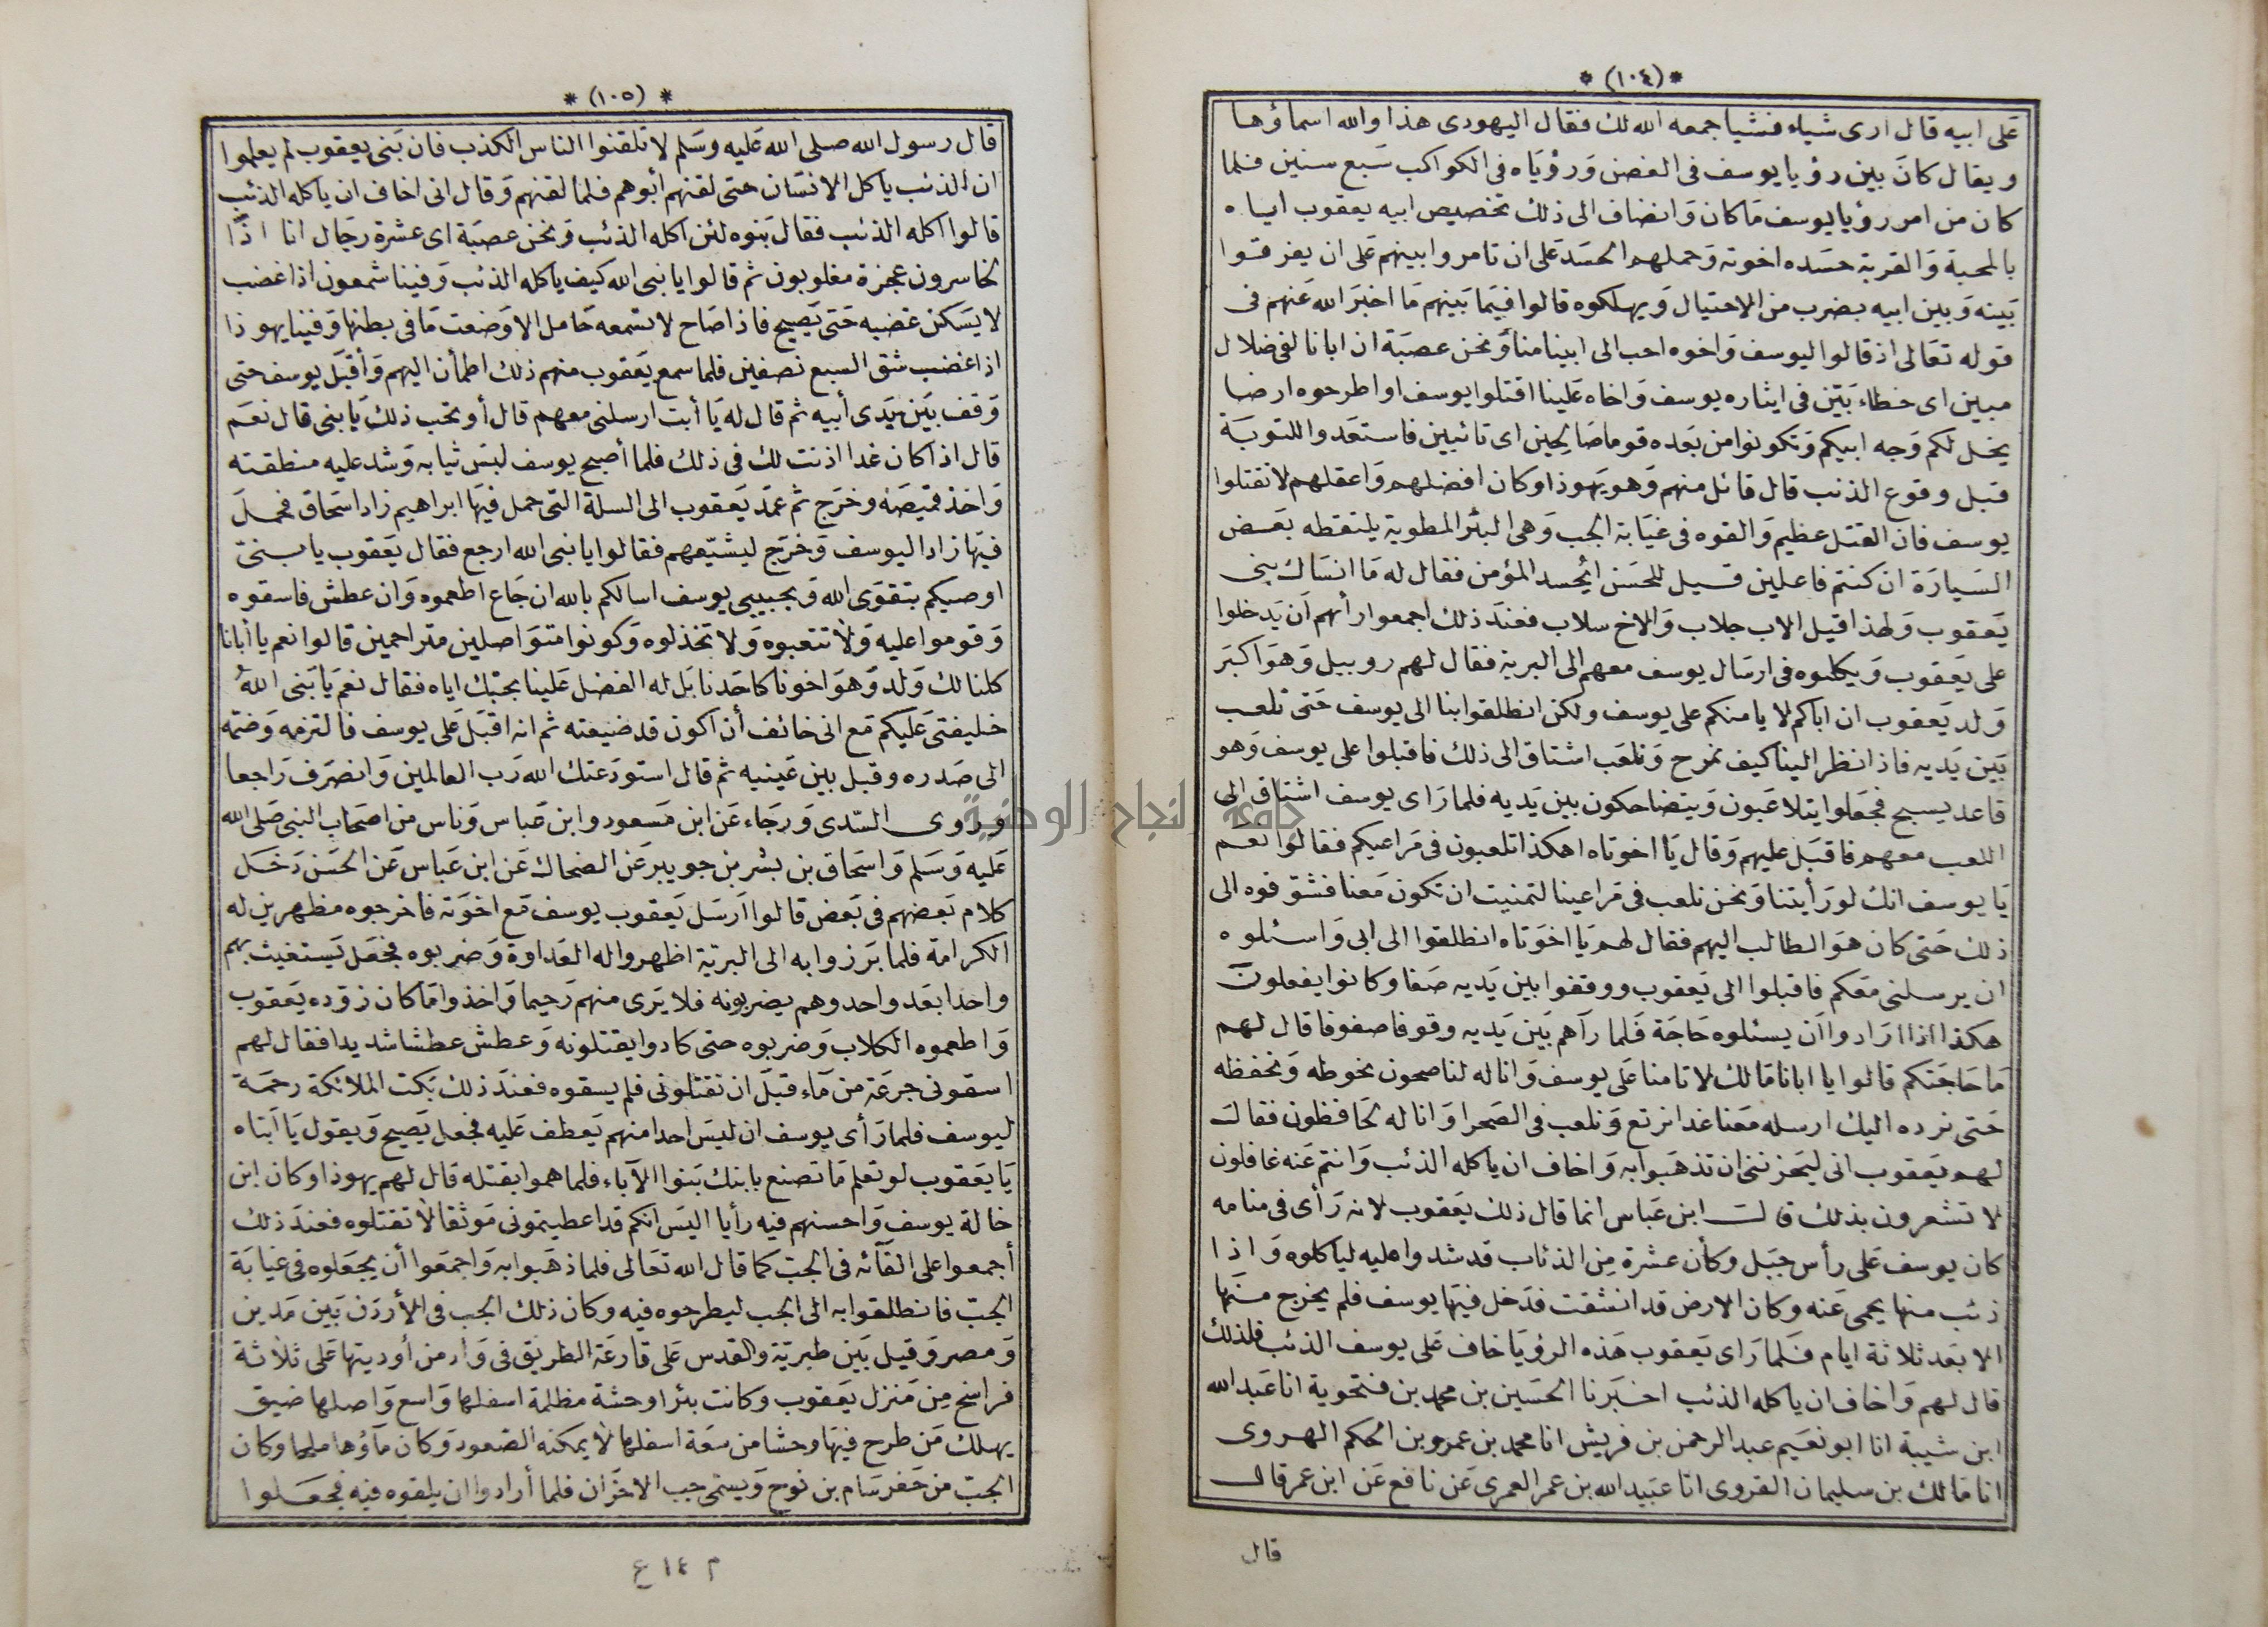 *(١٠٤)*
على ابيه قال ارى شياء فشيا جمعه الله لك فقال اليهودى هذا والله اسماؤها
ويقال كان بين رؤيا يوسف فى الغصن ورؤياه فى الكواكب سبع سنين فلما
كان من امر رؤيا يوسف ما كان وانضاف الى ذلك تخصيص ابيه يعقوب اياه
بالمحبة والقربة حسده اخوته وحملهم الحسد على ان تامروا بينهم على ان يفرقوا
بينه وبين ابيه بضرب من الاحتيال ويهلكوه قالوا فيما بينهم ما اخبر الله عنهم فى
قوله تعالى اذ قالوا ليوسف واخوه احب الى ابينا منا ونحن عصبة ان ابانا لفى ضلال
مبين اى خطاء بيّن فى ايثاره يوسف واخاه علينا اقتلوا يوسف او اطرحوه ارضا
يخل لكم وجه ابيكم وتكونوا من بعده قوما صالحين اى تائبين فاستعدوا للتوبة
قبل وقوع الذنب قال قائل منهم وهو يهوذا وكان افضلهم واعقلهم لا تقتلوا
يوسف فان القتل عظيم والقوه فى غيابة الجب وهى البئر المطوية يلتقطه بعض
السيارة ان كنتم فاعلين قيل للحسن أيحسد المؤمن فقال له ما انساك بنى
يعقوب ولهذا قيل الاب جلاب والاخ سلاب فعند ذلك اجمعوا رأيهم ان يدخلوا
على يعقوب ويكلموه فى ارسال يوسف معهم الى البرية فقال لهم روبيل وهو اكبر
ولد يعقوب ان اباكم لا يامنكم على يوسف ولكن انطلقوا بنا الى يوسف حتى نلعب
بين يديه فاذا نظر الينا كيف نمرح ونلعب اشتاق الى ذلك فاقبلوا على يوسف وهو
قاعد يسبح فجعلوا يتلاعبون ويتضاحكون بين يديه فلما راى يوسف اشتاق الى
اللعب معهم فاقبل عليهم وقال يا اخوتاه اهكذا تلعبون فى مراعيكم فقالوا نعم
يا يوسف انك لو رأيتنا ونحن نلعب فى مراعينا لتمنيت ان تكون معنا فشوقوه الى
ذلك حتى كان هو الطالب اليهم فقال لهم يا اخوتاه انطلقوا الى ابى واسئلوه
ان يرسلنى معكم فاقبلوا الى يعقوب ووقفوا بين يديه صفا وكانوا يفعلون
هكذا اذا ارادوا ان يسئلوه حاجة فلما رآهم بين يديه وقوفا صفوفا قال لهم
ما حاجتكم قالوا يا ابانا مالك لا تامنا على يوسف وانا له لناصحون نحوطه ونحفظه
حتى نرده اليك ارسله معنا غدا نرتع ونلعب فى الصحرا وانا له لحافظون فقال
لهم يعقوب انى ليحزننى ان تذهبوا به واخاف ان ياكله الذئب وانتم عنه غافلون
لا تشعرون بذلك قال ابن عباس انما قال ذلك يعقوب لانه رأى فى منامه
كان يوسف على رأس جبل وكأن عشرة من الذئاب قد شدوا عليه لياكلوه واذا
ذئب منها يحمى عنه وكان الارض قد انشقت فدخل فيها يوسف فلم يخرج منها
الا بعد ثلاثة ايام فلما راى يعقوب هذه الرؤيا خاف على يوسف الذئب فلذلك
قال لهم واخاف ان ياكله الذئب اخبرنا الحسين بن محمد بن فتحوية انا عبد الله
ابن شيبة انا ابو نعيم عبد الرحمن بن قريش انا محمد بن عمرو بن الحكم الهروى
انا مالك بن سليمان القروى انا عبيد الله بن عمر العمرى عن نافع عن ابن عمر قال
قال
*(١٠٥)*
قال رسول الله صلى الله عليه وسلم لا تلقنوا الناس الكذب فان بنى يعقوب لم يعلموا
ان الذئب ياكل الانسان حتى لقنهم أبوهم فلما لقنهم وقال انى اخاف ان ياكله الذئب
قالوا اكله الذئب فقال بنوه لئن اكله الذئب ونحن عصبة اى عشرة رجال انا اذًا
لخاسرون عجزة مغلوبون ثم قالوا يا نبى الله كيف ياكله الذئب وفينا شمعون اذا غضب
لا يسكن غضبه حتى يصيح فاذا صاح لا تسمعه حامل الا وضعت ما فى بطنها وفينا يهوذا
اذا غضب شق السبع نصفين فلما سمع يعقوب منهم ذلك اطمأن اليهم وأقبل يوسف حتى
وقف بين يدى أبيه ثم قال له يا أبت ارسلنى معهم قال أو تحب ذلك يا بنى قال نعم
قال اذا كان غدا اذنت لك فى ذلك فلما أصبح يوسف لبس ثيابه وشد عليه منطقته
واخذ قميصه وخرج ثم عمد يعقوب الى السلة التى حمل فيها ابراهيم زاد اسحاق فحمل
فيها زاد اليوسف وخرج ليشيّعهم فقالوا يا نبى الله ارجع فقال يعقوب يا بنىّ
اوصيكم بتقوى الله وبحبيبى يوسف اسالكم بالله ان جاع اطعموه وان عطش فاسقوه
وقوموا عليه ولا تتعبوه ولا تخذلوه وكونوا متواصلين متراحمين قالوا نعم يا أبانا
كلنا لك ولد وهو اخونا كاحدنا بل له الفضل علينا بحبك اياه فقال نعم يا بنى الله
خليفتى عليكم مع انى خائف أن اكون قد ضيعته ثم انه اقبل على يوسف فالتزمه وضمه
الى صدره وقبل بين عينيه ثم قال استودعتك الله رب العالمين وانصرف راجعا
وروى السّدى ورجاء عن ابن مسعود وابن عباس وناس من اصحاب النبى صلى الله
عليه وسلم واسحاق بن بشر بن جويبر عن الضحاك عن ابن عباس عن الحسن دخل
كلام بعضهم فى بعض قالوا ارسل يعقوب يوسف مع اخوته فاخرجوه مظهرين له
الكرامة فلما برزوا به الى البرية اظهروا له العداوة وضربوه فجعل يستغيث بهم
واحدا بعد واحد وهم يضربونه فلا يرى منهم رحيما واخذوا ما كان زوده يعقوب
واطعموه الكلاب وضربوه حتى كادوا يقتلونه وعطش عطشا شديدا فقال لهم
اسقونى جرعة من ماء قبل ان تقتلونى فلم يسقوه فعند ذلك بكت الملائكة رحمة
ليوسف فلما رأى يوسف ان ليس احدا منهم يعطف عليه فجعل يصيح ويقول يا ابتاه
يا يعقوب لو تعلم ما تصنع بابنك بنوا الآباء فلما هموا بقتله قال لهم يهوذا وكان ابن
خالة يوسف واحسنهم فيه رأيا اليس انكم قد اعطيتمونى موثقا لا تقتلوه فعند ذلك
أجمعوا على القآئه فى الجب كما قال الله تعالى فلما ذهبوا به واجمعوا أن يجعلوه فى غيابة
الجبّ فانطلقوا به الى الجب ليطرحوه فيه وكان ذلك الجب فى الأردن بين مدين
ومصر وقيل بين طبريّة والقدس على قارعة الطريق فى واد من أوديتها على ثلاثة
فراسخ من منزل يعقوب وكانت بئرا وحشة مظلمة اسفلها واسع واصلها ضيق
يهلك من طرح فيها وحشا من سعة اسفلها لا يمكنه الصعود وكان مآؤها ملحا وكان
الجبّ من حفر سام بن نوح ويسمى جب الاحزان فلما أرادوا ان يلقوه فيه فجعلوا
م ١٤ ع
جامعة النجاح الوطنية